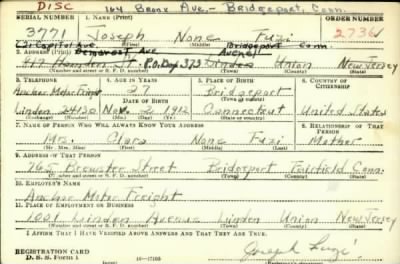 DISC 164 Bronx Ave. - Bridgeport, Conn.
SERIAL NUMBER 1. NAME (Print) ORDER NUMBER
3771 Joseph None Fuzi 2736
(First) (Middle) (Last)
21 Capitol Ave. Bridgeport Conn.
2. ADDRESS (Print) Demorest Ave Avenell
417 Harden St. P.O. Box 373 Linden Union New Jersey
(Number and street or R. F. D. number) (Town) (County) (State)
3. TELEPHONE 4. AGE IN YEARS 5. PLACE OF BIRTH 6. COUNTRY OF CITIZENSHIP
Anchor Motor Freight 27 Bridgeport
DATE OF BIRTH (Town or county)
Linden 24130 Nov 2 1912 Connecticut United States
(Exchange) (Number) (Mo.) (Day) (Yr.) (State or country)
7. NAME OF PERSON WHO WILL ALWAYS KNOW YOUR ADDRESS 8. RELATIONSHIP OF THAT PERSON
Mrs. Clara None Fuzi Mother
(Mr., Mrs., Miss) (First) (Middle) (Last)
9. ADDRESS OF THAT PERSON
765 Brewster Street Bridgeport Fairfield Conn.
(Number and street or R. F. D. number) (Town) (County) (State)
10. EMPLOYER'S NAME
Anchor Motor Freight
11. PLACE OF EMPLOYMENT OR BUSINESS
1001 Linden Avenue Linden Union New Jersey
(Number and street or R. F. D. number) (Town) (County) (State)
I AFFIRM THAT I HAVE VERIFIED ABOVE ANSWERS AND THAT THEY ARE TRUE.
REGISTRATION CARD
D. S. S. Form 1 16-17105 Joseph Fuzi